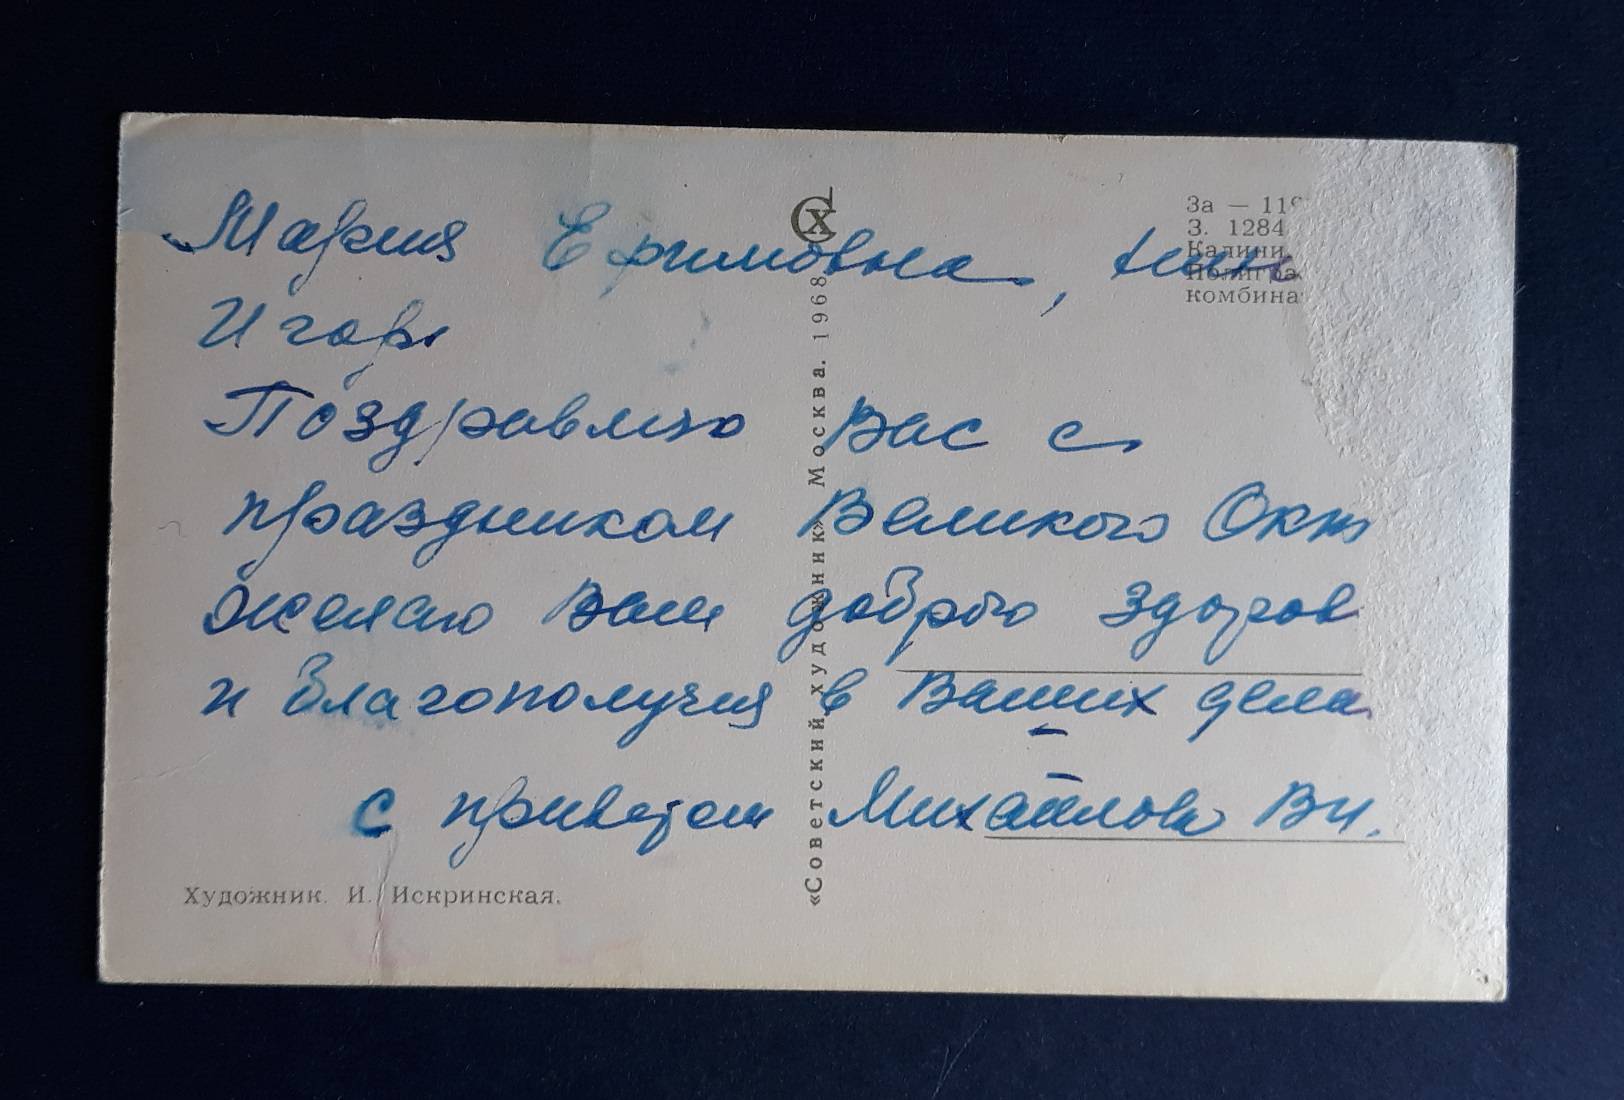 Мария Ефимовна,
Игорь
Поздравляю Вас с
праздником Великого Окт
Желаю Вам доброго здоров
и благополучия в Ваших дела
с приветом Михайлова Вч.
За — 119
З. 1284
Калини
Полигра
комбина
«Советский художник» Москва. 1968
Художник. И. Искринская.